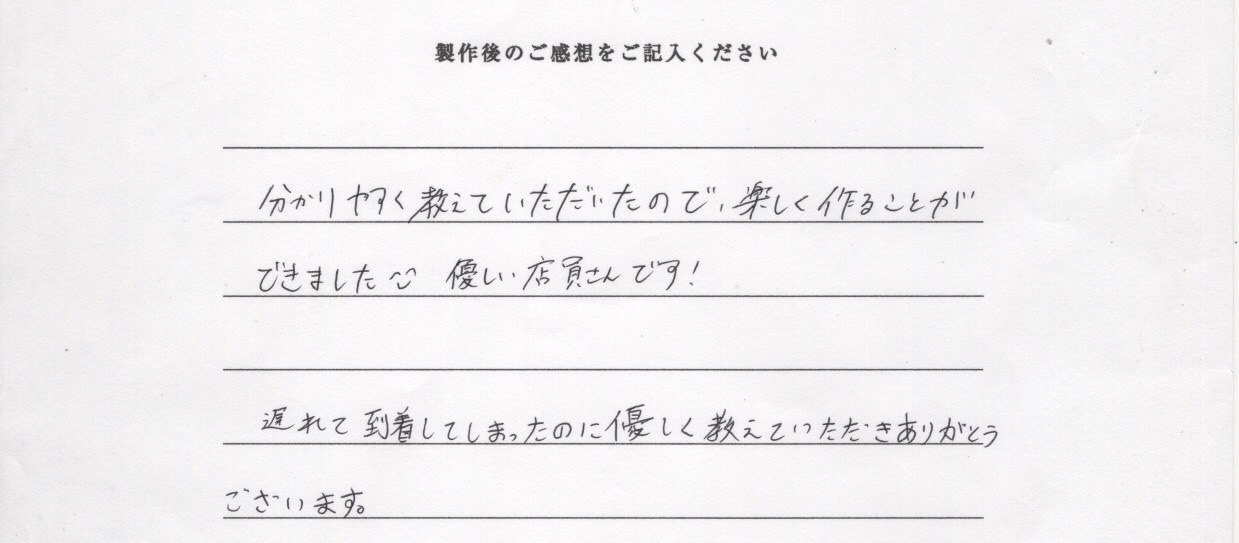 製作後のご感想をご記入ください
分かりやすく教えていただいたので、楽しく作ることが
できました 優しい店員さんです!
遅れて到着してしまったのに優しく教えていただきありがとう
ございます。